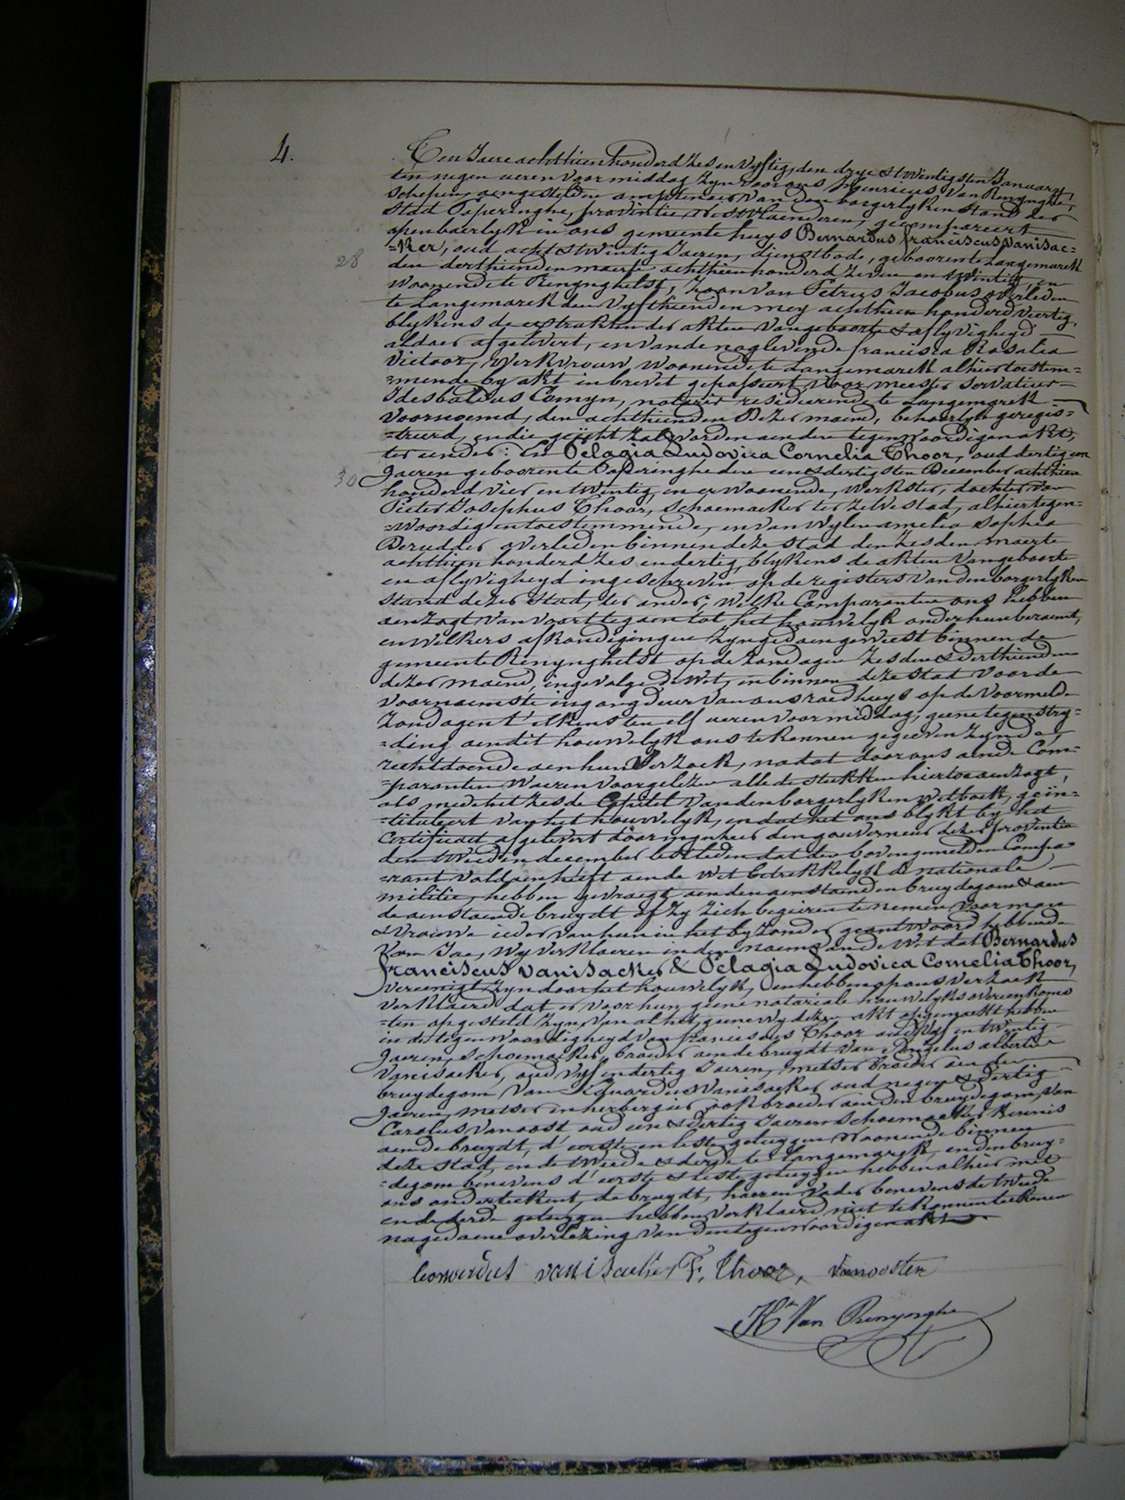 4.
Ten Jaere achthien honderd zes en vyftig, den drye & twintigsten January,
ten negen ueren voormiddag zyn voor ons Henricus Van Renynghe,
schepen, aengestelden amptenaer van den borgerlyken stand der
Stad Poperinghe, provintie Westvlaenderen, gecompareert
openbaerlyk in ons gemeentehuys Bernardus franciscus Vanisac-
28
=ker, oud acht & twintig Jaeren, dienstbode, geboren te Langemarck
den derthienden maerte achthien honderd zeven en twintig, en
woonende te Renynghelst, zoon van Petrus Jacobus overleden
te Langemarck den vyfthienden mey achthien honderd veertig,
blykens de extrakten der akten van geboorte & aflyvigheyd
aldaer afgelevert, en van de noglevende francisca Rosalia
Victoor, werkvrouw, woonende te Langemarck alhier toestem-
=mende by akt in brevet gepasseert voor meester Servatius
Idesbaldus Comyn, notaris residerende te Langemarck
voornoemd, den achthienden dezer maend, behoorlyk geregis-
=treerd, en die gehecht zal worden aen den tegenwoordigen akt,
ter eender: En Pelagia Ludovica Cornelia Thoor, oud dertig een
30
Jaeren geboren te Poperinghe den een & dertigsten December achthien
honderd vier en twintig, en er woonende, werkster, dochter van
Pieter Josephus Thoor, schoemaeker ter zelve stad, alhier tegen-
=woordig en toestemmende, en van wylen amelia Sophia
Berudder overleden binnen deze stad den zesden maerte
achthien honderd zes en dertig, blykens de akten van geboorte
en aflyvigheyd ingeschreven op de registers van den borgerlyken
stand dezer stad, ter ander; welke Comparanten ons hebben
aenzogt van voort te gaen tot het houwelyk onder hun beraemt,
en welkers afkondigingen zyn gedaen geweest binnen de
gemeente Renynghelst op de zondagen zesden & derthienden
dezer maend, ingevolge de wet, en binnen deze stad voor de
voornaemste ingangdeur van ons raedhuys op de voormelde
zondagen t'elkens ten elf ueren voormiddag; geene tegenstry-
=ding aen dit houwelyk ons te kennen gegeven zynde,
rechtdoende aen hun verzoek, nadat door ons aen de Com-
=paranten waeren voorgelezen alle de stukken hiertoe aenzogt,
als mede het zesde Capittel van den borgerlyken wetboek, geïn-
=tituleert van het houwelyk, en dat het ons blykt by het
Certificaet afgelevert door mynheer den gouverneur dezer provintie
den tweeden december lestleden dat den bovengemelden Compa-
=rant voldaen heeft aen de wet betrekkelyk de nationale
militie, hebben gevraegt aen den aenstaenden bruydegom & aen
de aenstaende bruydt of zy zich begeeren te nemen voor man
& vrouwe ieder van hun in het byzonder geantwoord hebbende
van Jae, Wy verklaeren in den naem van de wet dat Bernardus
franciscus Vanisacker & Pelagia Ludovica Cornelia Thoor,
vereenigt zyn door het houwelyk, en hebben op ons verzoek
verklaerd dat er voor hun geene notariale houwelyks overeenkoms
=ten opgesteld zyn, van al het geene wy dezen akt opgemaekt hebben
in de tegenwoordigheyd van franciscus Thoor oud vyf en twintig
Jaeren, schoemaeker, broeder aen de bruydt van Angelus albertus
Vanisacker, oud vyf en dertig Jaeren, metser broeder aen den
bruydegom van Eduardus Vanisacker oud negen & dertig
Jaeren, metser en herbergier ook broeder aen den bruydegom, van
Carolus Vanoost oud een & dertig Jaeren schoemaeker kennis
aen de bruydt, d'eerste en leste getuygen woonende binnen
deze stad, en de tweede & derde te Langemarck, en den bruy-
=degom benevens d'eerste & leste getuygen hebben alhier met
ons onderteekent, de bruydt, haeren vader benevens de tweede
en de derde getuygen hebben verklaerd niet te konnen teekenen
na gedaene overlezing van den tegenwoordigen akt.
bernardus vanisacker F. Thoor, vanoosten
Hri Van Renynghe